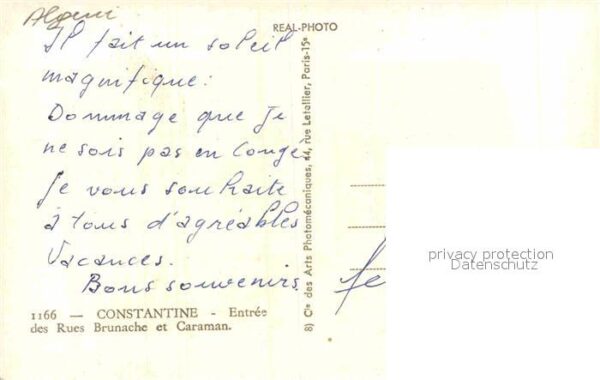 Algeri
REAL-PHOTO
Il fait un soleil
magnifique:
Dommage que je
ne sois pas en Conge
Je vous souhaite
à tous d'agréables
Vacances.
Bons souvenirs.
1166 — CONSTANTINE - Entrée
des Rues Brunache et Caraman.
8) Cie des Arts Photomécaniques, 44, rue Letellier, Paris-15e
privacy protection
Datenschutz